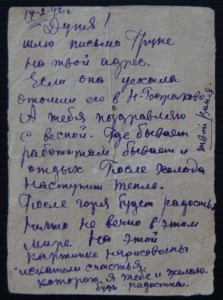 14-3-42г.
Дуня!
шлю письмо Груне
на твой адрес.
Если она уехала
отошли его в Н-
А тебя поздравляю
с весной. Где бывает
работа там бывает и
отдых После холода
наступит тепло.
После горя будет радость
ничто не вечно в этом
мире На этой
картинке нарисованы
искатели счастья,
которого я тебе и желаю.
будь радостна.
твой Ваня